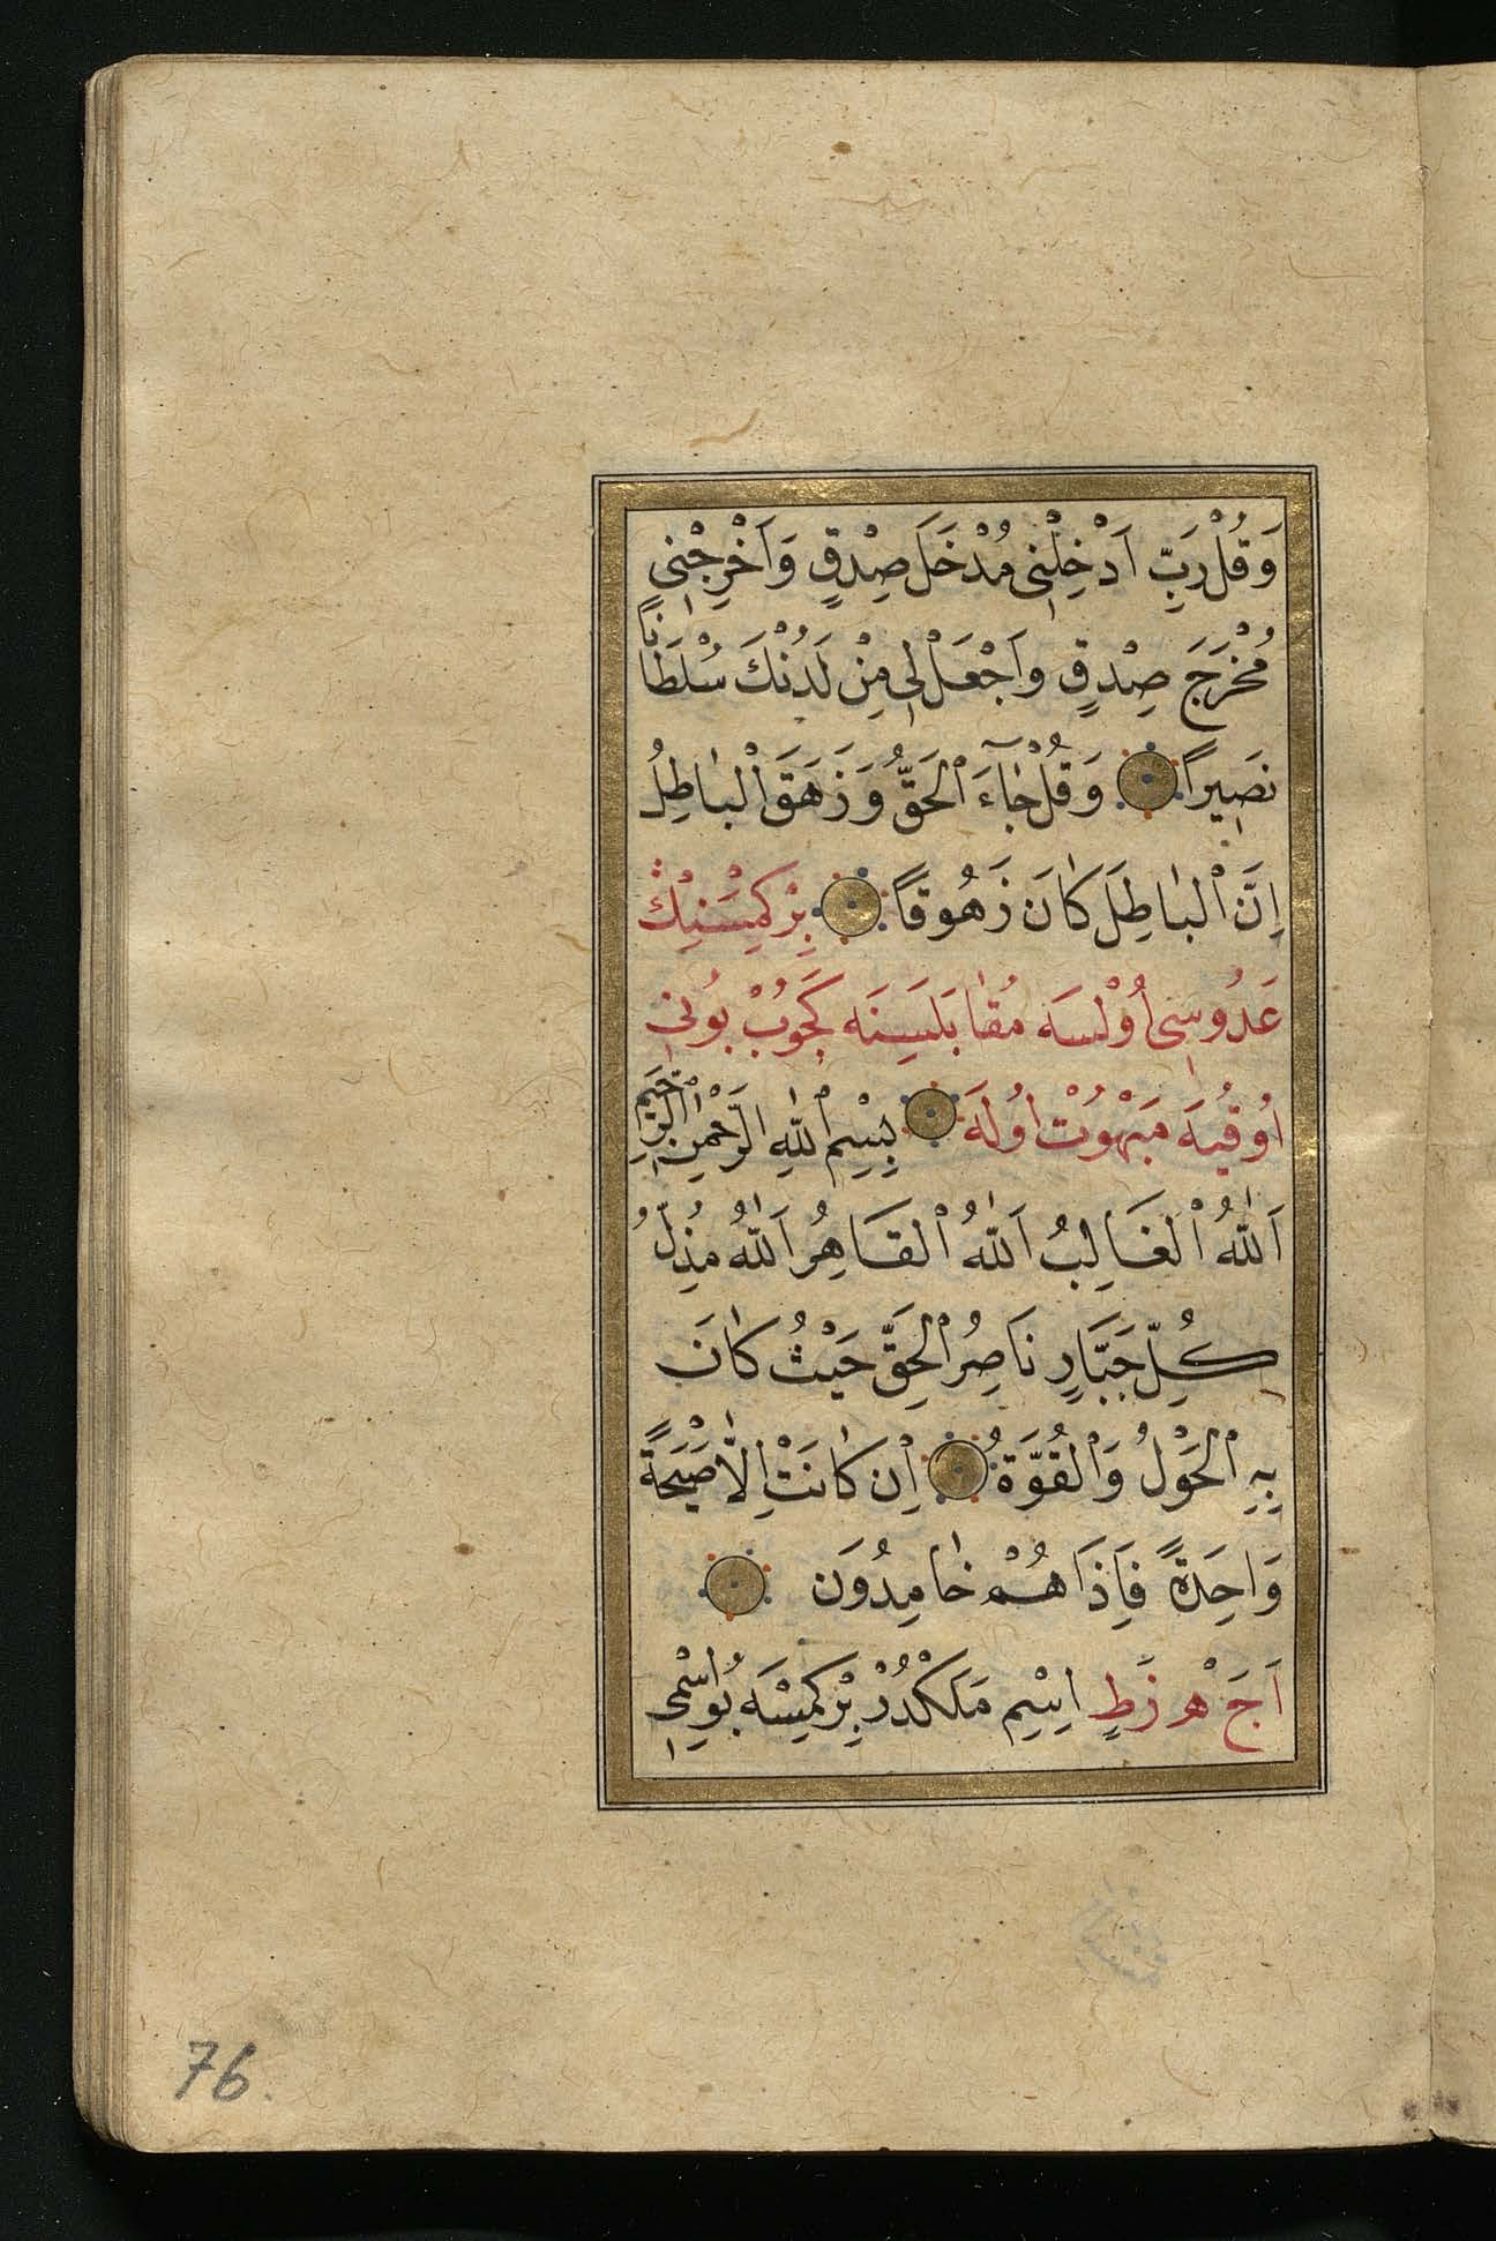 وَقُلْ رَبِّ اَدْخِلْنِى مُدْخَلَ صِدْقٍ وَاَخْرِجْنِى
مُخْرَجَ صِدْقٍ وَاَجْعَلْ لِى مِنْ لَدُنْكَ سُلْطَانًا
نَصِيرًا وَقُلْ جَآءَ ٱلْحَقُّ وَزَهَقَ ٱلْبَاطِلُ
اِنَّ ٱلْبَاطِلَ كَانَ زَهُوقًا بِرْ كِمْسَنِيْڭ
عَدُوسِى اُوْلْسَه مُقَابَلَسِينَه كَچُوبْ بُونِى
اُوقِيَه مَبْهُوتْ اُولَه بِسْمِ ٱللّٰهِ ٱلرَّحْمٰنِ ٱلرَّحِيمِ
اَللّٰهُ ٱلْغَالِبُ اَللّٰهُ ٱلْقَاهِرُ اَللّٰهُ مُذِلُّ
كُلِّ جَبَّارٍ نَاصِرُ ٱلْحَقِّ حَيْثُ كَانَ
بِهِ ٱلْحَوْلُ وَٱلْقُوَّةُ اِنْ كَانَتْ اِلَّا صَيْحَةً
وَاحِدَةً فَاِذَا هُمْ خَامِدُونَ
اَجَ هْزَطٍ اِسْمِ مَلَكْدُرْ بِرْ كِمْسَه بُو اِسْمِى
76.